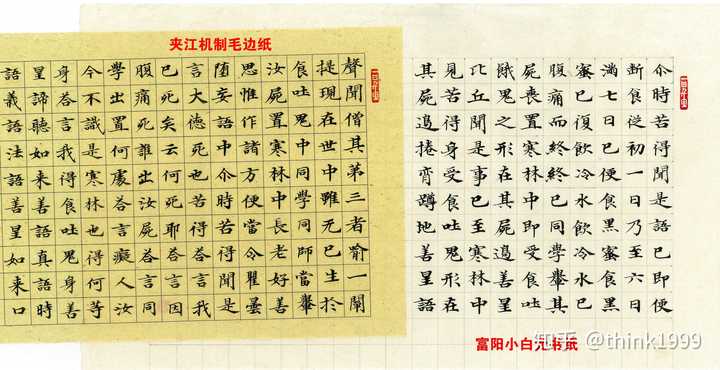 夹江机制毛边纸
尒時苦得聞是語已即便
斷食從初一日乃至六日
滿七日已便食黑蜜食黑
蜜已復飲冷水飲冷水已
腹痛而終終已同學輦其
屍喪置寒林中即受食吐
餓鬼之形在其屍邉善星
比丘聞是事已至寒林中
見苦得身受食吐鬼形在
其屍邉捲脊蹲地善星語
聲聞僧其第三者喻一闡
提現在世中雖无已生於
食吐鬼中同學同師當輦
汝屍置寒林中長老好善
思惟作諸方便當令瞿曇
墮妄語中尒時苦得聞是
言大德死也苦得荅言我
已死矣云何死耶荅言因
腹痛死誰出汝屍荅言同
學出置何處荅言癡人汝
今不識是寒林也得何等
身荅言我得食吐鬼身善
星諦聽如來善語真語時
語義語法語善星如來口
富阳小白元书纸
知乎 @think1999